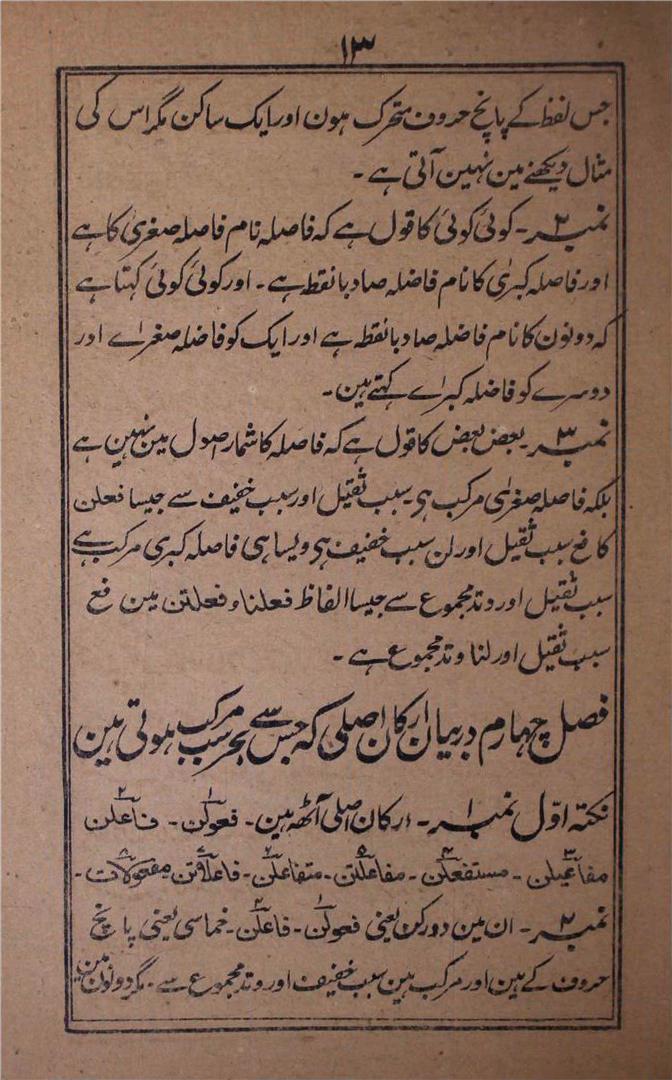 ۱۳
جس لفظ کے پانچ حروف متحرک ہون اور ایک ساکن مگر اس کی
مثال دیکھنے مین نہین آتی ہے ۔
نمبر ۲ ۔ کوئی کوئی کا قول ہے کہ فاصلہ نام فاصلہ صغریٰ کا ہے
اور فاصلہ کبریٰ کا نام فاضلہ ضاد با نقطہ ہے ۔ اور کوئی کوئی کہتا ہے
کہ دونون کا نام فاضلہ ضاد با نقطہ ہے اور ایک کو فاضلہ صغراے اور
دوسرے کو فاضلہ کبراے کہتے ہین ۔
نمبر ۳ ۔ بعض بعض کا قول ہے کہ فاصلہ کا شمار اصول مین نہین ہے
بلکہ فاصلہ صغریٰ مرکب ہی سبب ثقیل اور سبب خفیف سے جیسا فعلن
کا فع سبب ثقیل اور لن سبب خفیف ہی ویسا ہی فاصلہ کبری مرکب ہے
سبب ثقیل اور وتد مجموع سے جیسا الفاظ فعلنا و فعلتن مین فع
سبب ثقیل اور لنا وتد مجموع ہے ۔
فصل چہارم در بیان ارکان اصلی کہ جس سے بحر سب مرکب ہوتی ہین
نکتہ اوّل نمبر ۱ ۔ ارکان اصلی آٹھ ہین ۔ فعولن۱ ۔ فاعلن۲
مفاعیلن۳ ۔ مستفعلن۴ ۔ مفاعلتن۵ ۔ متفاعلن۶ ۔ فاعلاتن۷ مفعولات۸ ۔
نمبر ۲ ۔ ان مین دو رکن یعنی فعولن۱ ۔ فاعلن۲ ۔ خماسی یعنی پانچ
حروف کے ہین اور مرکب ہین سبب خفیف اور وتد مجموع سے ۔ مگر دونون مین